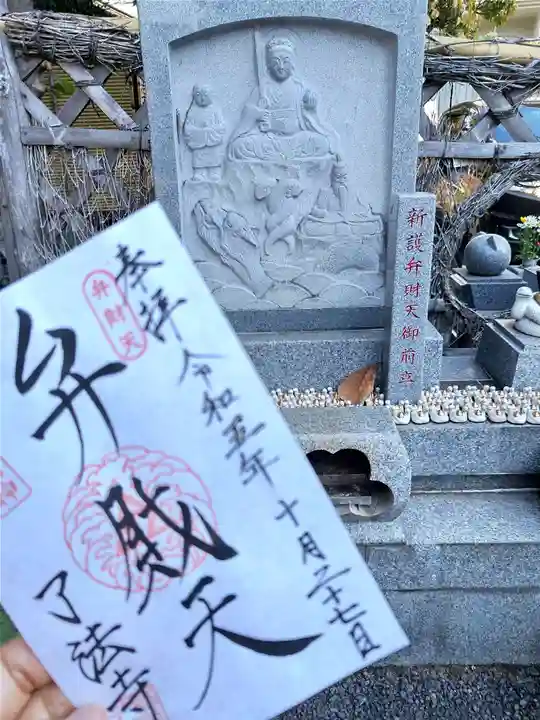 奉拝 令和五年 十月二十七日
弁財天
弁財天
了法寺
新護弁財天御前立